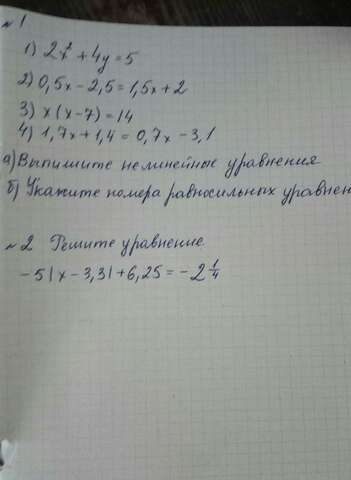 № 1
1) 2x² + 4y = 5
2) 0,5x - 2,5 = 1,5x + 2
3) x(x-7) = 14
4) 1,7x + 1,4 = 0,7x - 3,1
а) Выпишите нелинейные уравнения
б) Укажите номера равносильных уравнен
№ 2 Решите уравнение.
-5|x - 3,3| + 6,25 = -2 1/4